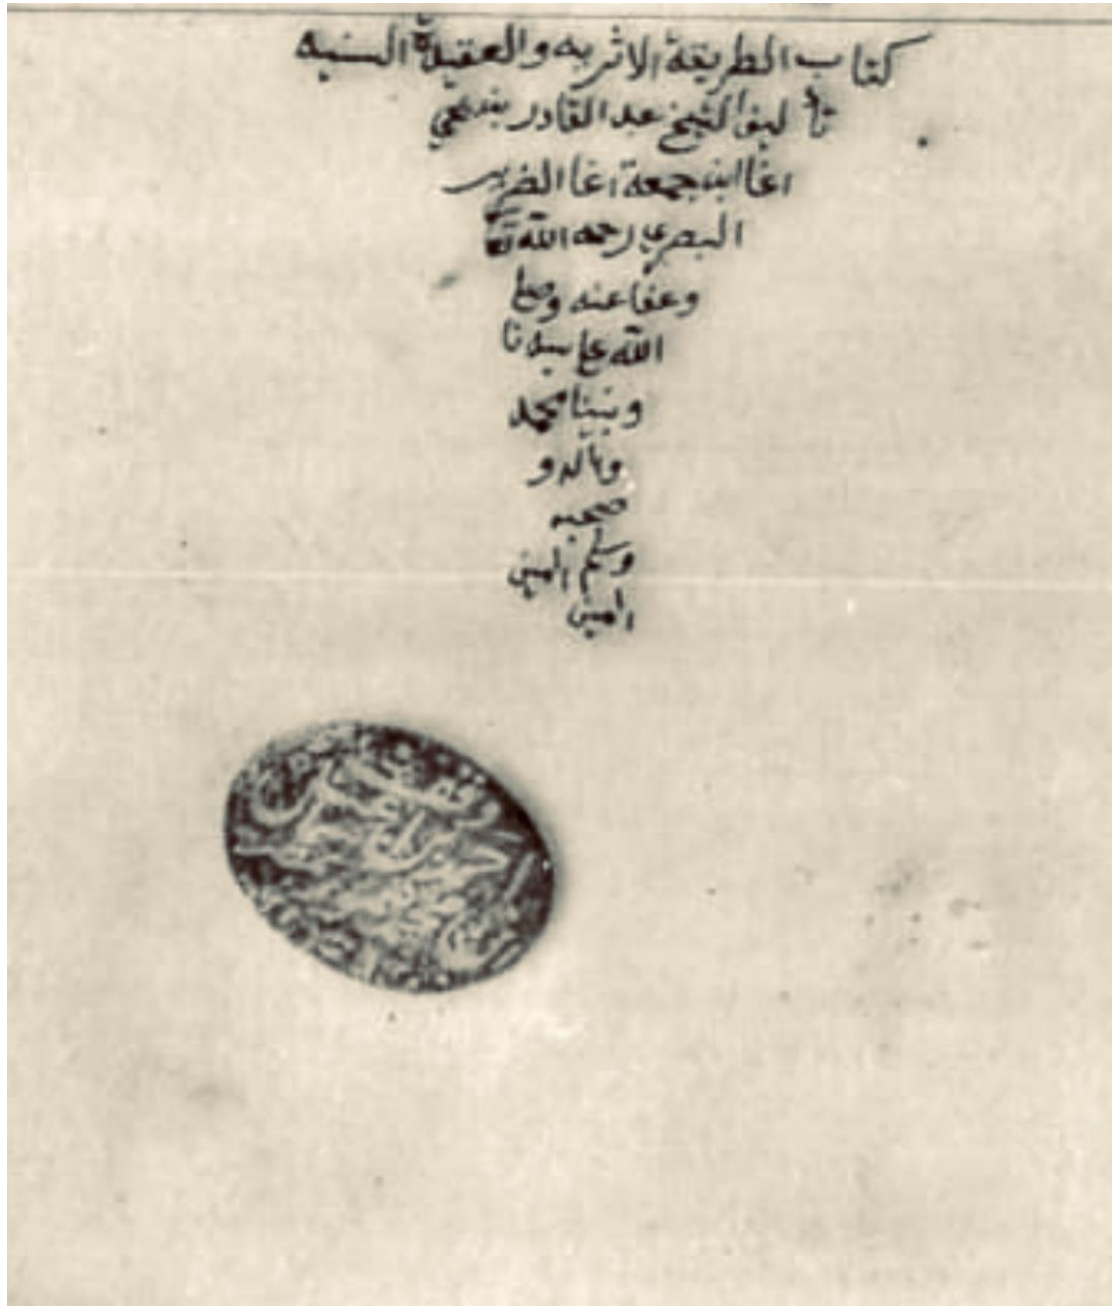 كتاب الطريقة الاثريه والعقيدة السنيه
تأليف الشيخ عبد القادر بن
اغا ابن جمعة اغا الضرير
البصري رحمه الله تع
وعفا عنه وصلى
الله على سيدنا
ونبينا محمد
وآله و
صحبه
وسلم امين
امين